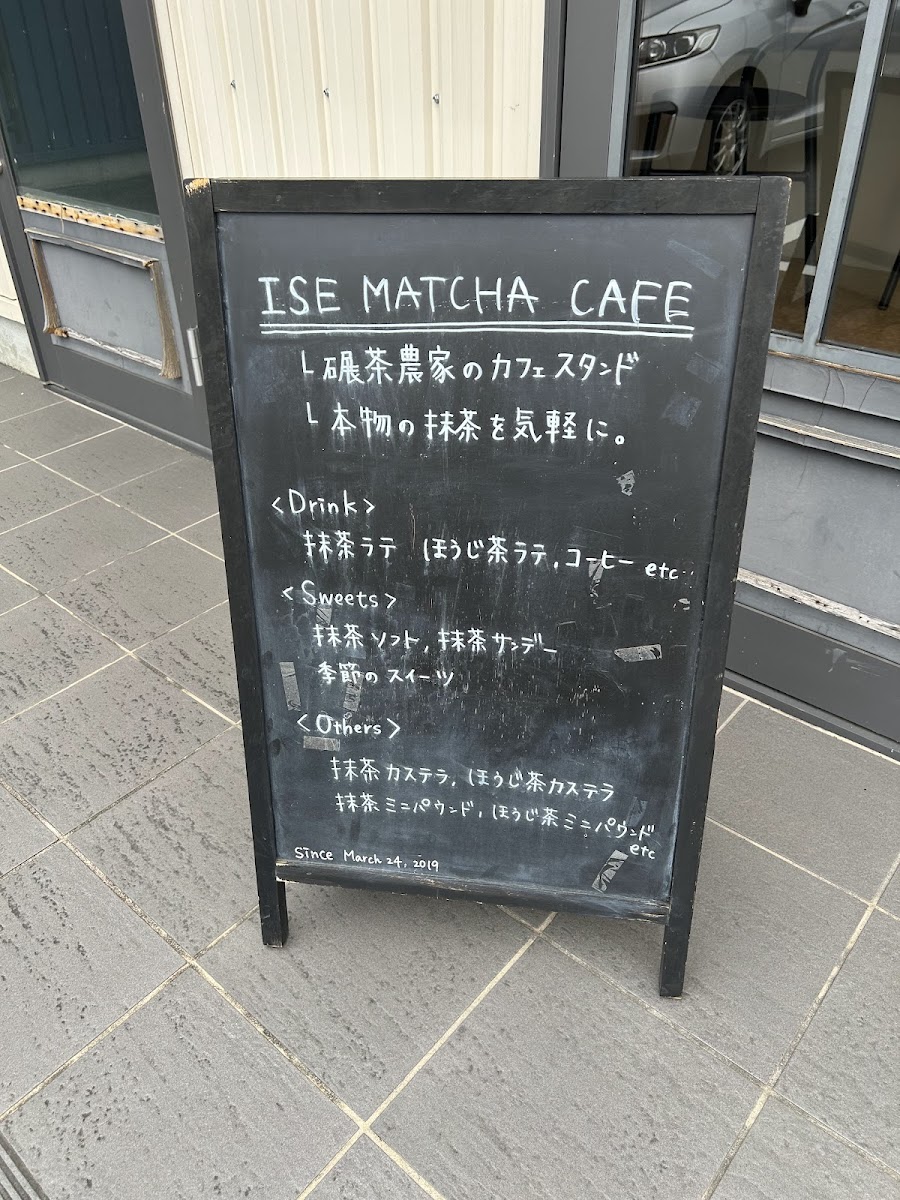 ISE MATCHA CAFE
└ 碾茶農家のカフェスタンド
└ 本物の抹茶を気軽に。
<Drink>
抹茶ラテ ほうじ茶ラテ, コーヒー etc
<Sweets>
抹茶ソフト, 抹茶サンデー
季節のスイーツ
<Others>
抹茶カステラ, ほうじ茶カステラ
抹茶ミニパウンド, ほうじ茶ミニパウンド
etc
Since March 24, 2019